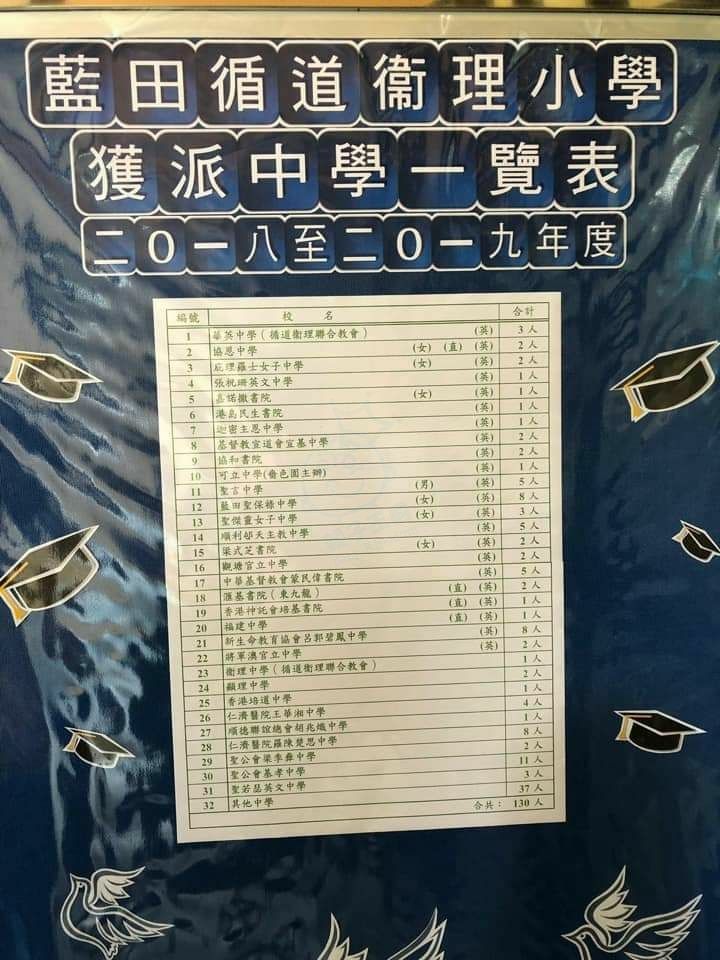 藍田循道衞理小學
獲派中學一覽表
二0一八至二0一九年度
編號 校名 合計
1 華英中學（循道衞理聯合教會） (英) 3 人
2 協恩中學 (女) (直) (英) 2 人
3 庇理羅士女子中學 (女) (英) 2 人
4 張祝珊英文中學 (英) 1 人
5 嘉諾撒書院 (女) (英) 1 人
6 港島民生書院 (英) 1 人
7 迦密主恩中學 (英) 1 人
8 基督教宣道會宣基中學 (英) 2 人
9 協和書院 (英) 2 人
10 可立中學(嗇色園主辦) (英) 1 人
11 聖言中學 (男) (英) 5 人
12 藍田聖保祿中學 (女) (英) 8 人
13 聖傑靈女子中學 (女) (英) 3 人
14 順利邨天主教中學 (英) 5 人
15 梁式芝書院 (女) (英) 2 人
16 觀塘官立中學 (英) 2 人
17 中華基督教會蒙民偉書院 (英) 5 人
18 匯基書院（東九龍） (直) (英) 2 人
19 香港神託會培基書院 (直) (英) 1 人
20 福建中學 (直) (英) 1 人
21 新生命教育協會呂郭碧鳳中學 (英) 8 人
22 將軍澳官立中學 (英) 2 人
23 衞理中學（循道衞理聯合教會） 1 人
24 顯理中學 2 人
25 香港培道中學 1 人
26 仁濟醫院王華湘中學 4 人
27 順德聯誼總會胡兆熾中學 1 人
28 仁濟醫院羅陳楚思中學 8 人
29 聖公會梁季彝中學 2 人
30 聖公會基孝中學 11 人
31 聖若瑟英文中學 3 人
32 其他中學 37 人
合共： 130 人